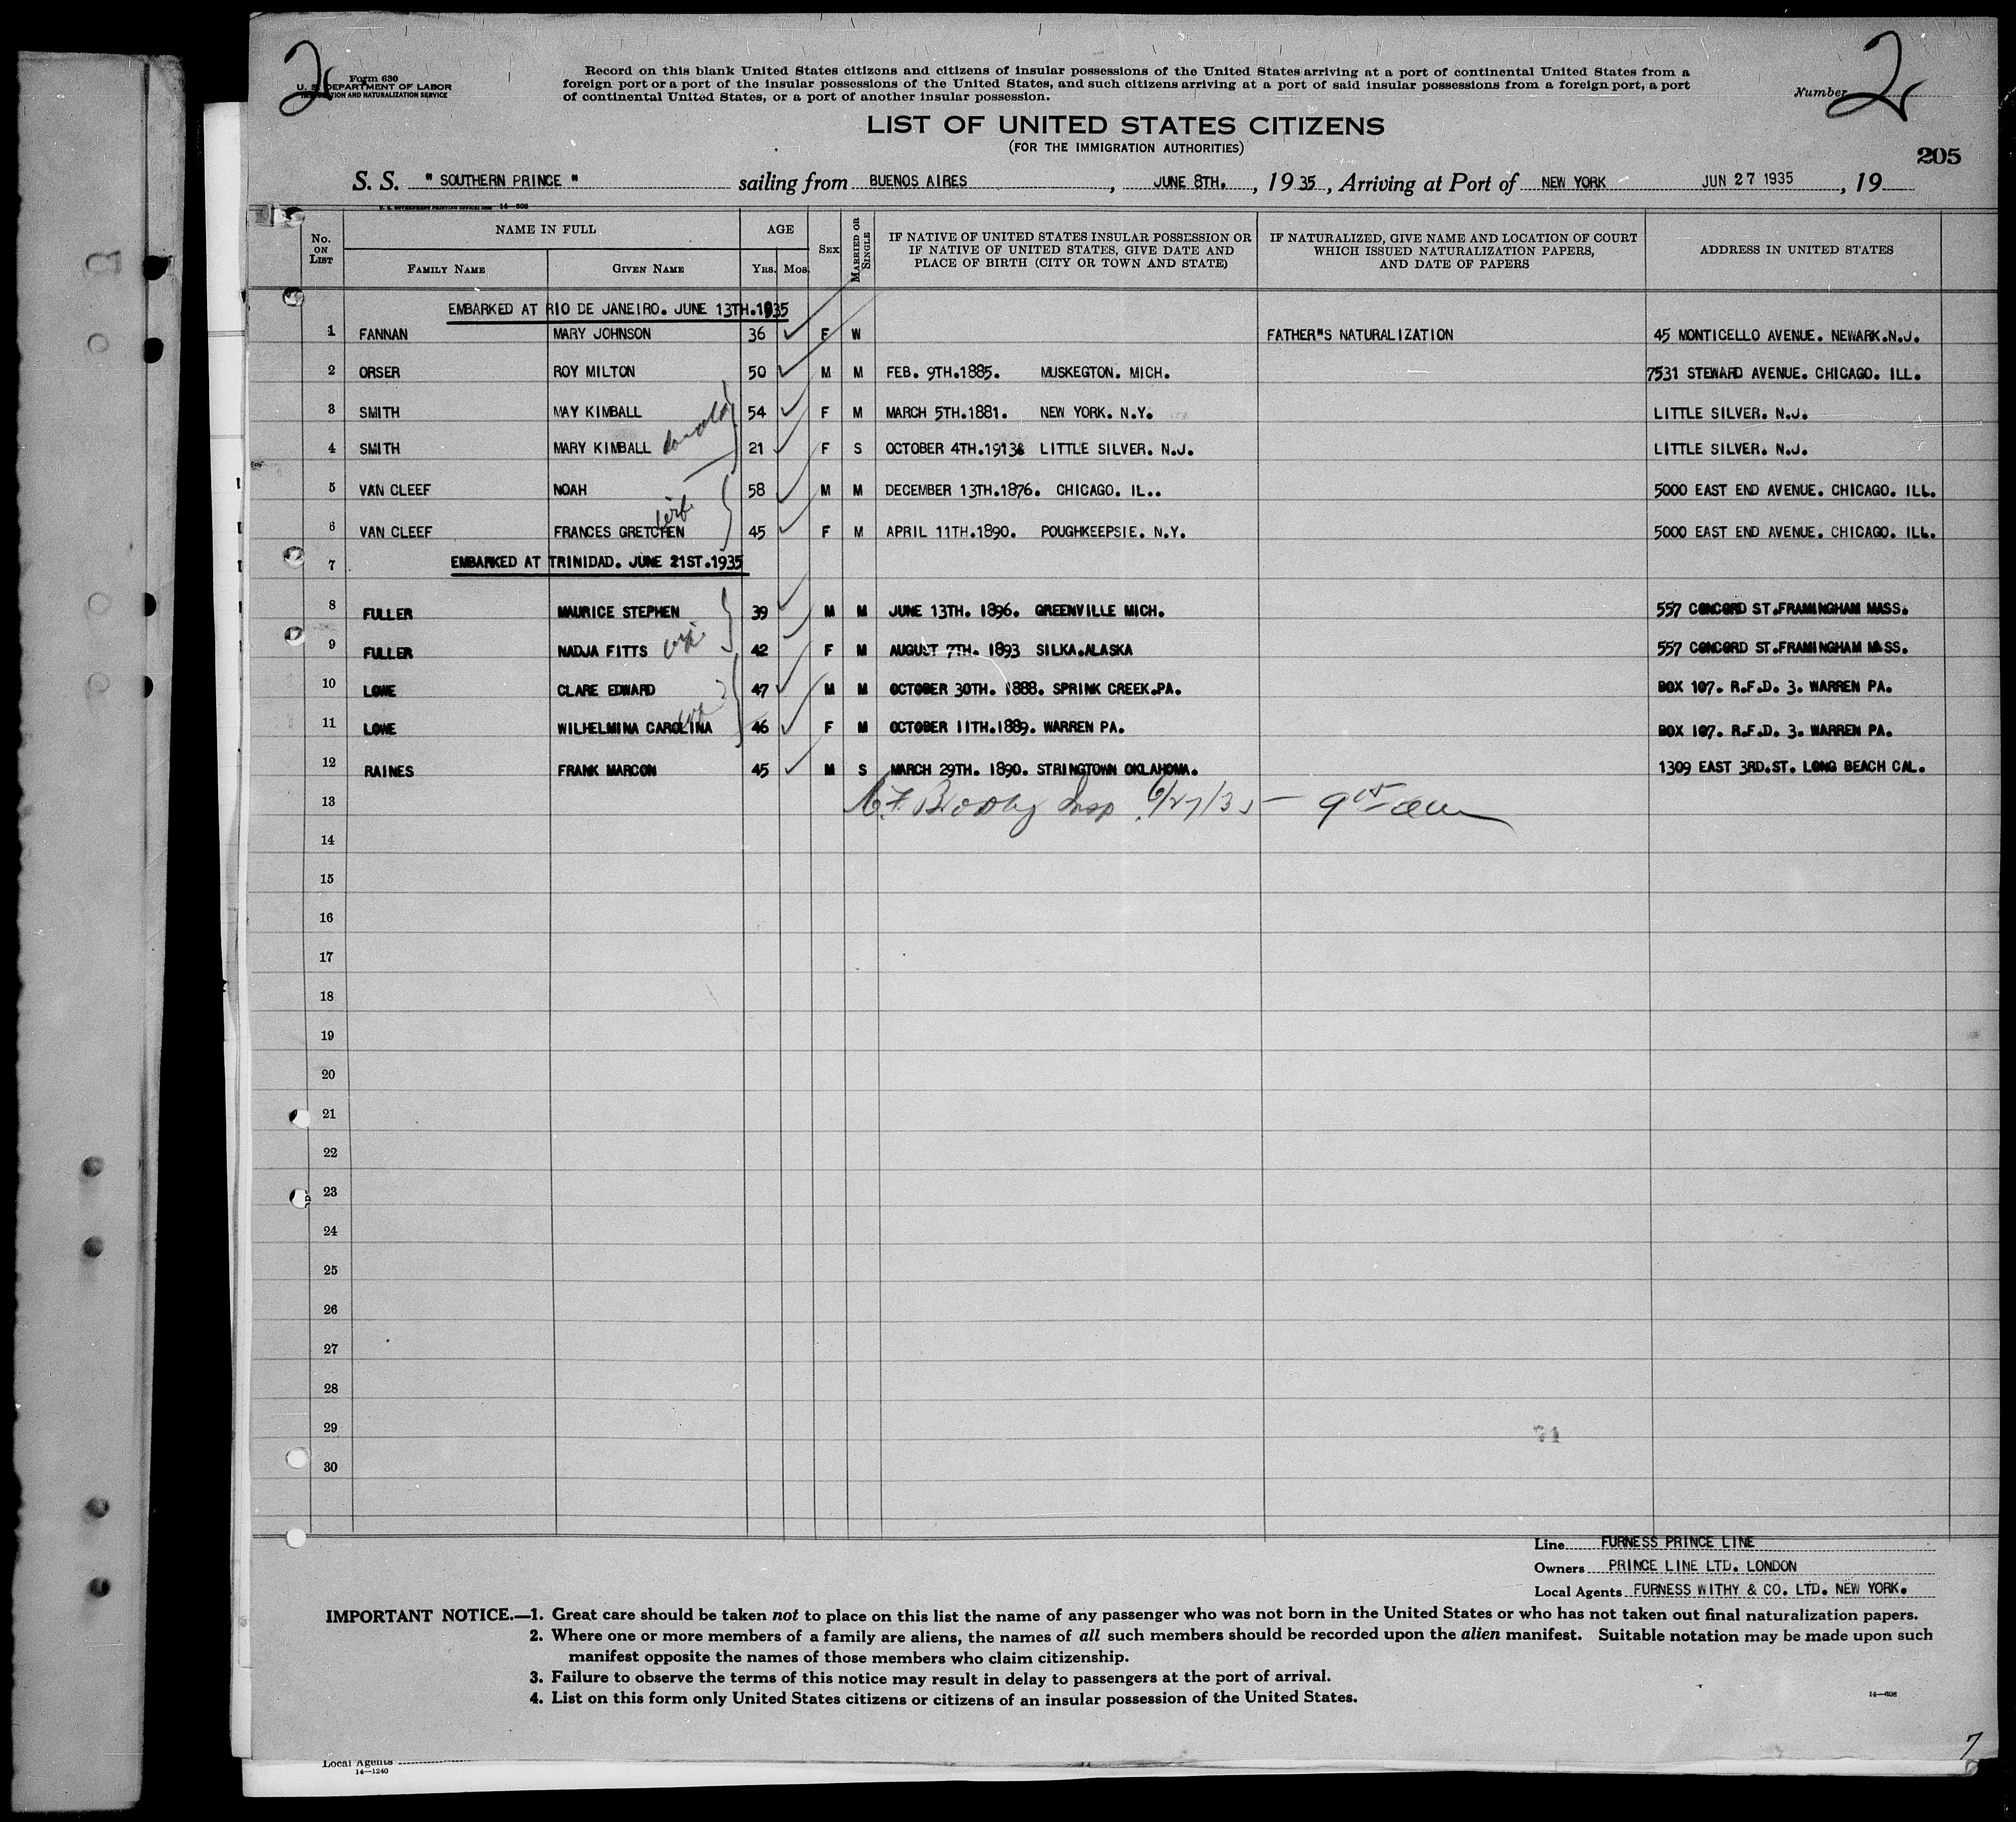 2
Form 630
U. S. DEPARTMENT OF LABOR
IMMIGRATION AND NATURALIZATION SERVICE
Record on this blank United States citizens and citizens of insular possessions of the United States arriving at a port of continental United States from a
foreign port or a port of the insular possessions of the United States, and such citizens arriving at a port of said insular possessions from a foreign port, a port
of continental United States, or a port of another insular possession.
Number 2
LIST OF UNITED STATES CITIZENS
(FOR THE IMMIGRATION AUTHORITIES)
205
S. S. " SOUTHERN PRINCE " sailing from BUENOS AIRES , JUNE 8TH. , 19 35 , Arriving at Port of NEW YORK JUN 27 1935 , 19
U. S. GOVERNMENT PRINTING OFFICE: 14—608
No. ON LIST NAME IN FULL FAMILY NAME GIVEN NAME AGE YRS. MOS. SEX MARRIED OR SINGLE IF NATIVE OF UNITED STATES INSULAR POSSESSION OR IF NATIVE OF UNITED STATES, GIVE DATE AND PLACE OF BIRTH (CITY OR TOWN AND STATE) IF NATURALIZED, GIVE NAME AND LOCATION OF COURT WHICH ISSUED NATURALIZATION PAPERS, AND DATE OF PAPERS ADDRESS IN UNITED STATES
EMBARKED AT RIO DE JANEIRO. JUNE 13TH.1935
1 FANNAN MARY JOHNSON 36 F W FATHER"S NATURALIZATION 45 MONTICELLO AVENUE. NEWARK.N.J.
2 ORSER ROY MILTON 50 M M FEB. 9TH.1885. MUSKEGTON. MICH. 7531 STEWARD AVENUE. CHICAGO. ILL.
3 SMITH MAY KIMBALL 54 F M MARCH 5TH.1881. NEW YORK. N.Y. LITTLE SILVER. N.J.
4 SMITH MARY KIMBALL 21 F S OCTOBER 4TH.1913 LITTLE SILVER. N.J. LITTLE SILVER. N.J.
5 VAN CLEEF NOAH 58 M M DECEMBER 13TH.1876. CHICAGO. IL.. 5000 EAST END AVENUE. CHICAGO. ILL.
6 VAN CLEEF FRANCES GRETCHEN wife 45 F M APRIL 11TH.1890. POUGHKEEPSIE. N.Y. 5000 EAST END AVENUE. CHICAGO. ILL.
7 EMBARKED AT TRINIDAD. JUNE 21ST.1935
8 FULLER MAURICE STEPHEN 39 M M JUNE 13TH. 1896. GREENVILLE MICH. 557 CONCORD ST.FRAMINGHAM MASS.
9 FULLER NADJA FITTS 42 F M AUGUST 7TH. 1893 SILKA.ALASKA 557 CONCORD ST.FRAMINGHAM MASS.
10 LOWE CLARE EDWARD 47 M M OCTOBER 30TH. 1888. SPRINK CREEK.PA. BOX 107. R.F.D. 3. WARREN PA.
11 LOWE WILHELMINA CAROLINA 46 F M OCTOBER 11TH.1889. WARREN PA. BOX 107. R.F.D. 3. WARREN PA.
12 RAINES FRANK MARCON 45 M S MARCH 29TH. 1890. STRINGTOWN OKLAHOMA. 1309 EAST 3RD.ST. LONG BEACH CAL.
13 Insp 6/27/35
14
15
16
17
18
19
20
21
22
23
24
25
26
27
28
29
30
Line FURNESS PRINCE LINE
Owners PRINCE LINE LTD. LONDON
Local Agents FURNESS WITHY & CO. LTD. NEW YORK.
IMPORTANT NOTICE.—1. Great care should be taken not to place on this list the name of any passenger who was not born in the United States or who has not taken out final naturalization papers.
2. Where one or more members of a family are aliens, the names of all such members should be recorded upon the alien manifest. Suitable notation may be made upon such
manifest opposite the names of those members who claim citizenship.
3. Failure to observe the terms of this notice may result in delay to passengers at the port of arrival.
4. List on this form only United States citizens or citizens of an insular possession of the United States.
14—608
7
Local Agents
14—1240